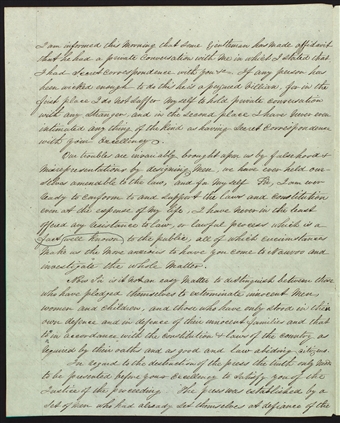 I am informed this morning that some Gentleman has made affidavit
that he had a private conversation with me in which I stated that
I had secret correspondence with you &c. If any person has
been wicked enough to do this he is a perjured villian, for in the
first place I do not suffer myself to hold private conversation
with any stranger, and in the second place I have never even
intimated any thing of the kind as having secret correspondence
with your Excellency.
Our troubles are invariably brought upon us by falsehoods &
misrepresentations by designing men, we have ever held our-
selves amendable to the law, and for myself Sir, I am ever
ready to conform to and support the laws and constitution
even at the expense of my life, I have never in the least
offered any resistance to law, or lawful process which is a
fact well known to the public, all of which circumstances
make us the more anxious to have you come to Nauvoo and
investigate the whole matter.
Now Sir is it not an easy matter to distinguish between those
who have pledged themselves to exterminate innocent men,
women and children, and those who have only stood in their
own defence and in defence of their innocent families and that
to in accordance with the constitution & laws of the country as
required by their oaths and as good and law abiding citizens.
In regard to the destruction of the press the truth only needs
to be presented before your Excellency to satisfy you of the
justice of the proceeding. The press was established by a
set of men who had already set themselves at defiance of the